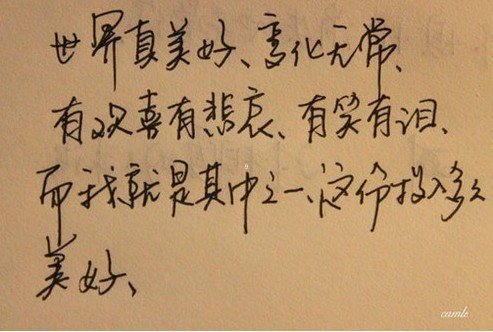 世界真美好、变化无常、
有欢喜有悲哀、有笑有泪、
而我就是其中之一、这份投入多么
美好、
camle